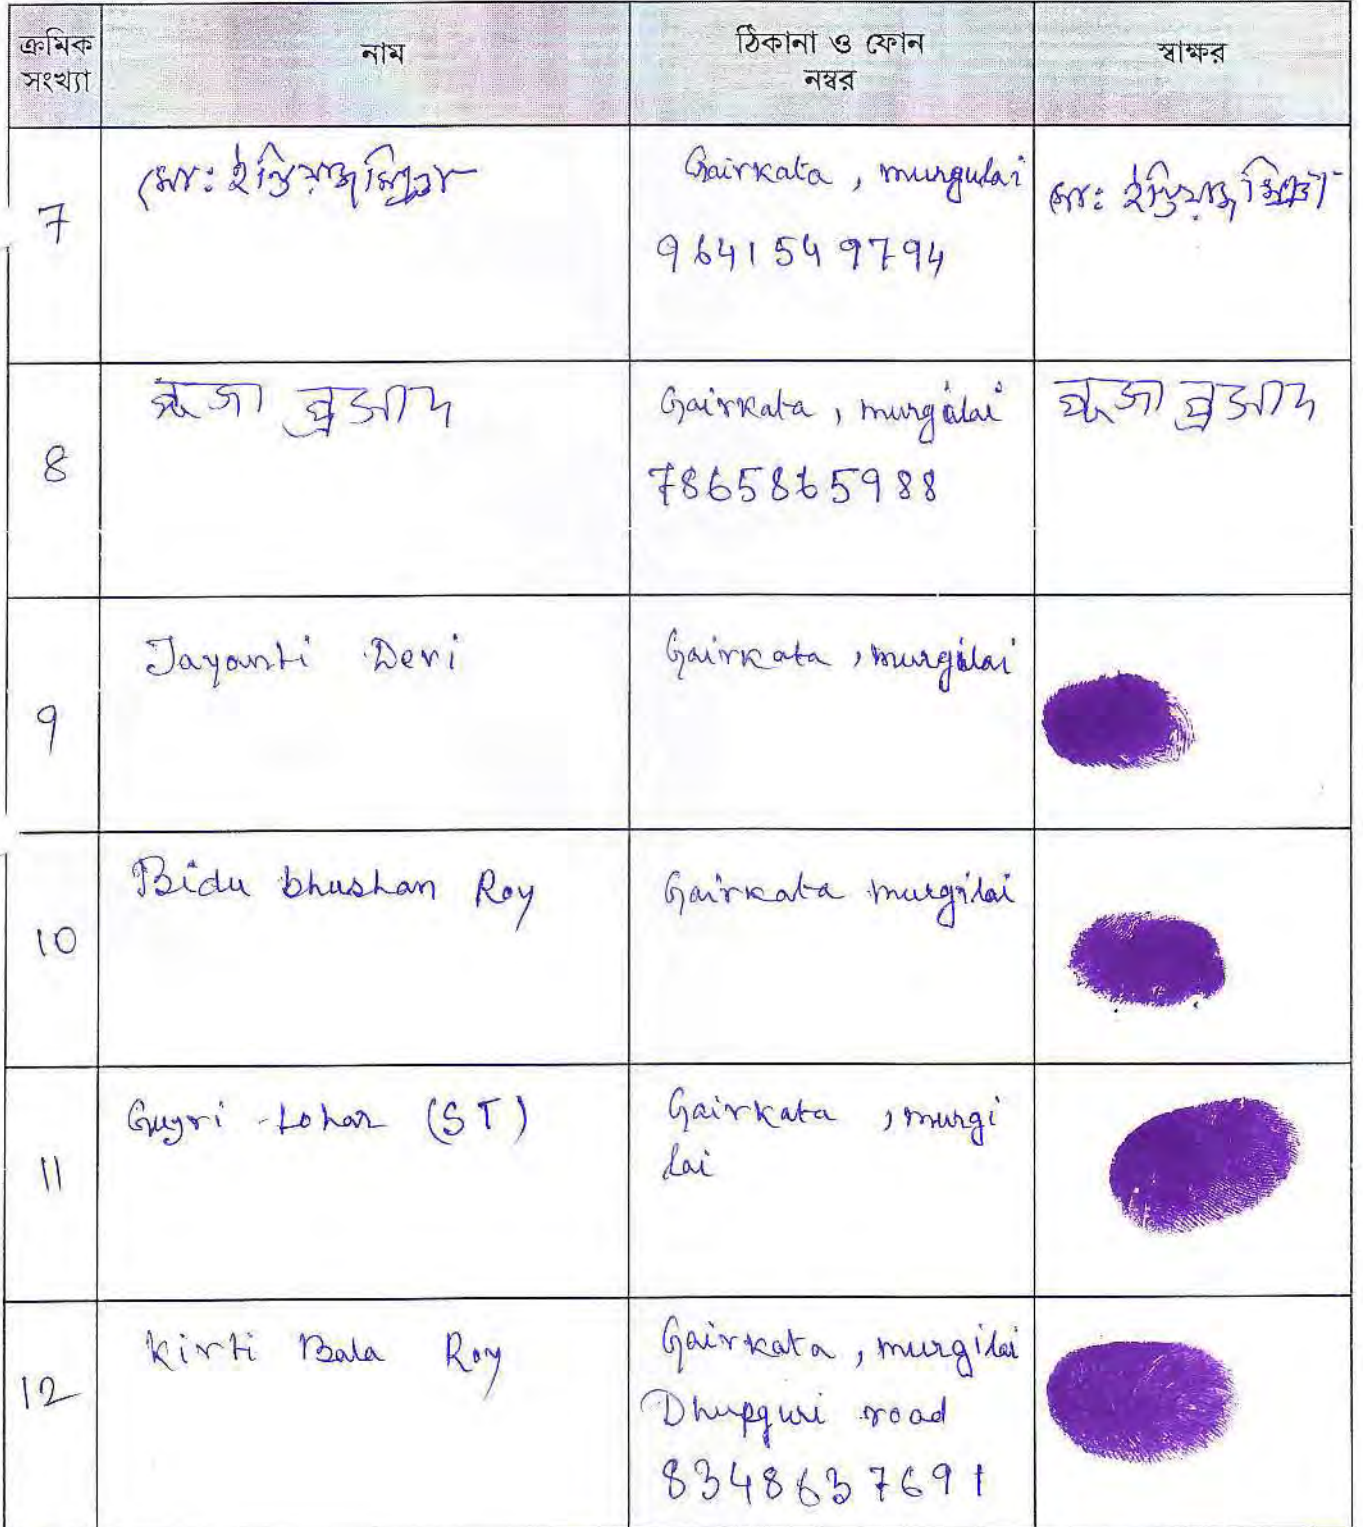 ক্রমিক সংখ্যা নাম ঠিকানা ও ফোন নম্বর স্বাক্ষর
7 মোঃ ইন্তিয়াজ Gairkata, murgulai মোঃ ইন্তিয়াজ
9641549794
8 পূজা প্রসাদ Gairkata, murgilai পূজা প্রসাদ
7865865988
9 Jayanti Devi Gairkata, murgilai
10 Bidu bhushan Roy Gairkata murgilai
11 Gugri Lohar (ST) Gairkata, murgi
lai
12 Kirti Bala Roy Gairkata, murgilai
Dhupguri road
8348637691